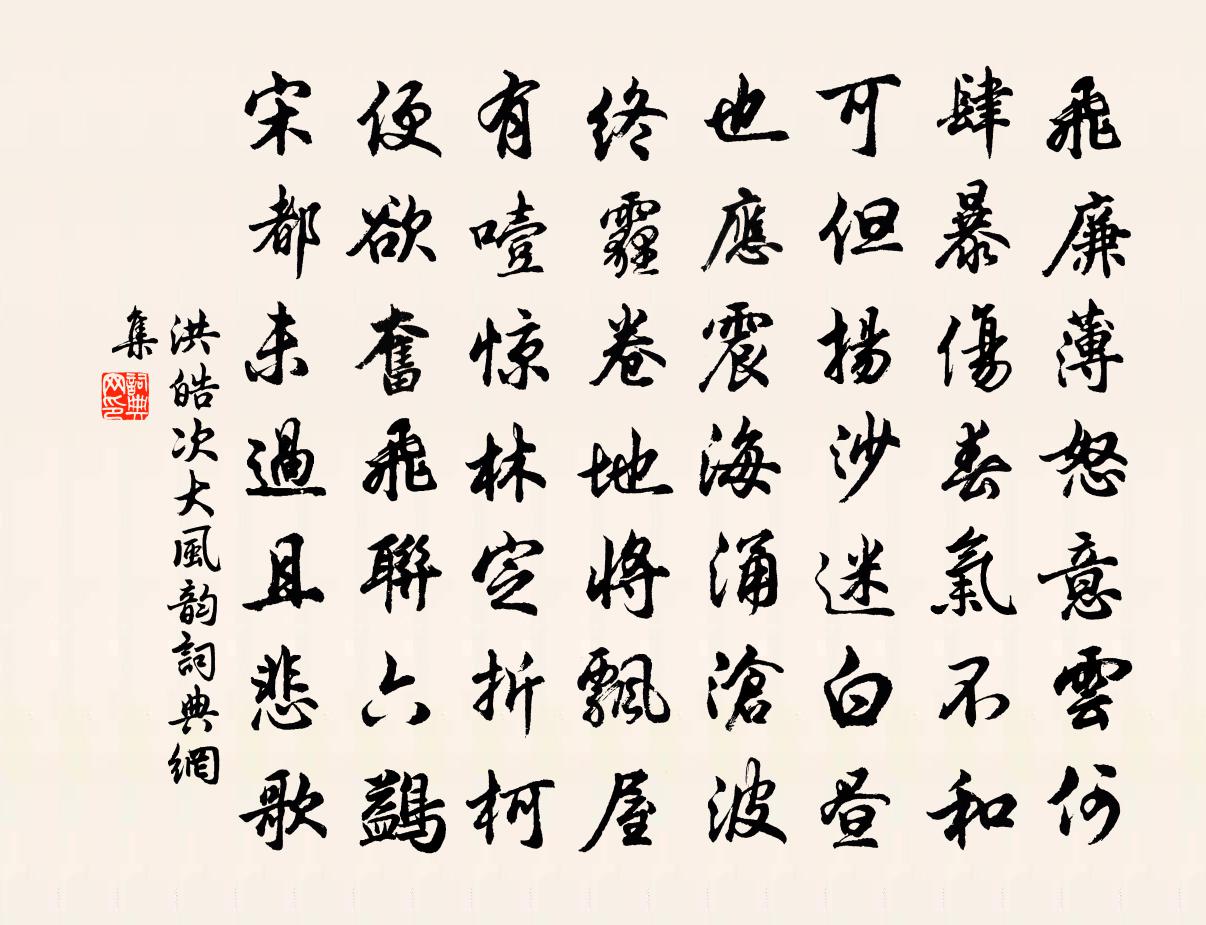 飛廉薄怒意雲何
肆暴傷春氣不和
可但揚沙迷白晝
也應震海涌滄波
終霾卷地將飄屋
有噎惊林定折柯
便欲奮飛聯六鷁
宋都未過且悲歌
洪皓次大風韵詞典網
集
詞典网印